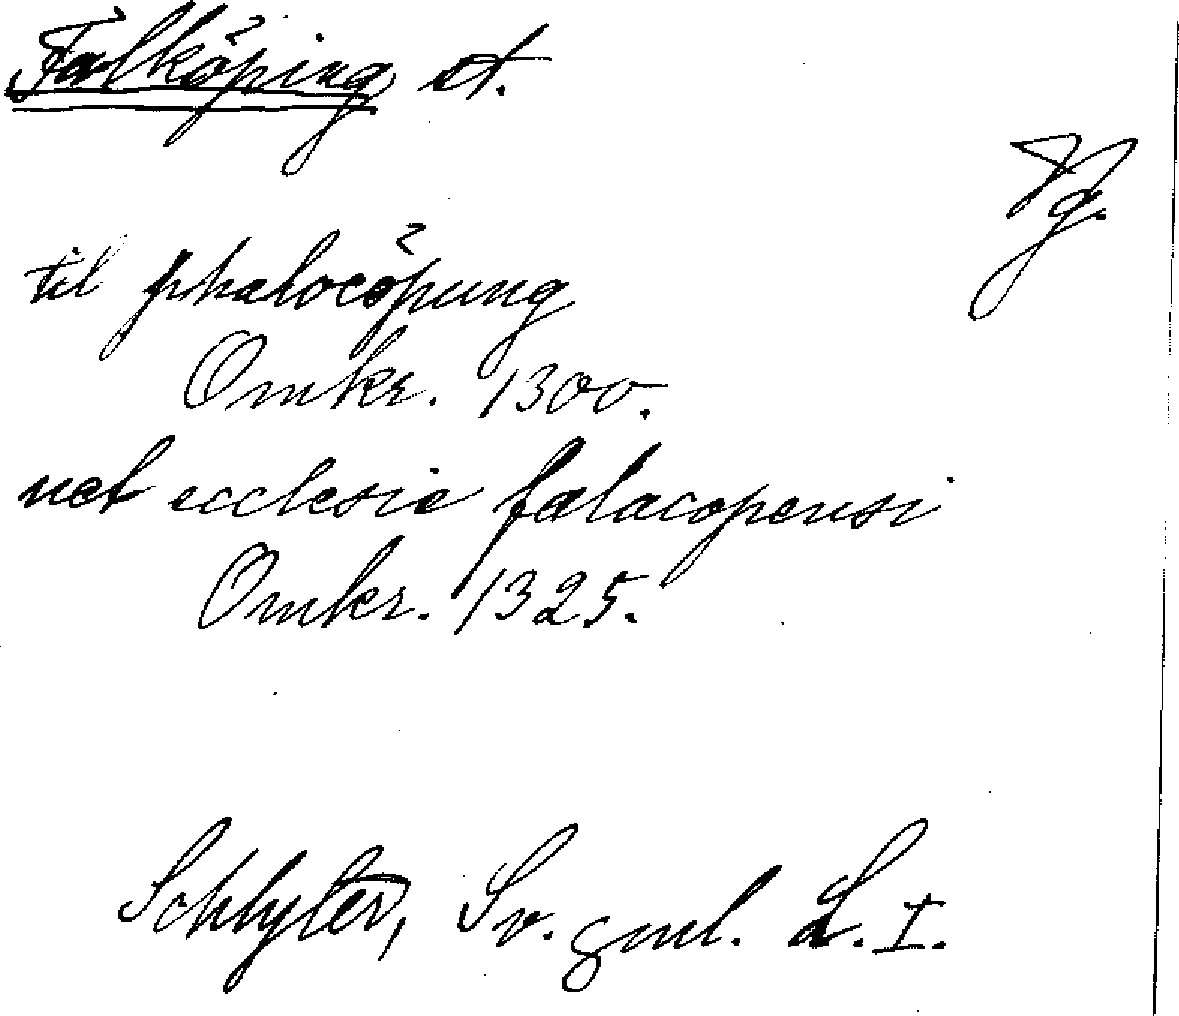 Falköping st.
Vg.
til phalocöpung
Omkr. 1300.
vet ecclesie falacopensi
Omkr. 1325.
Schlyter, Sv. gml. L. I.